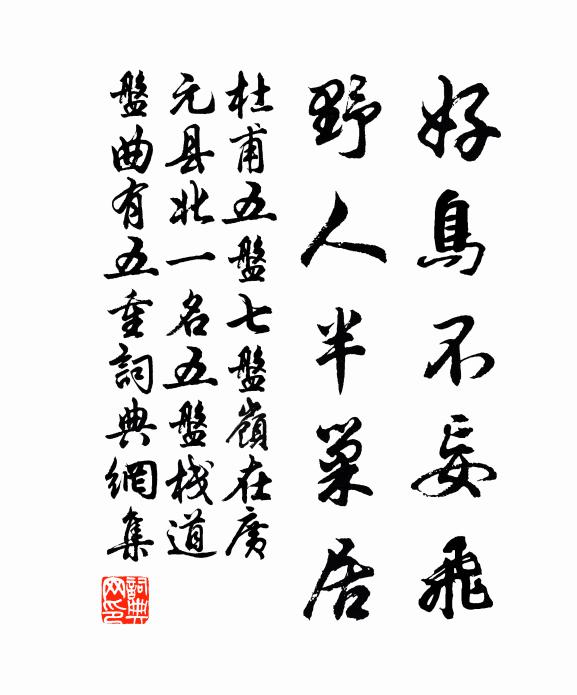 好鳥不妄飛
野人半巢居
杜甫五盤七盤嶺在廣
元县北一名五盤栈道
盤曲有五重詞典網集
詞典网印